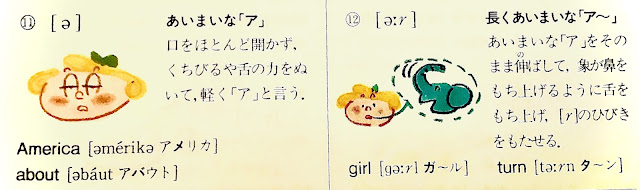 ⑪ [ə]
あいまいな「ア」
口をほとんど開かず,
くちびるや舌の力をぬ
いて,軽く「ア」と言う.
America [əmérikə アメリカ]
about [əbáut アバウト]
⑫ [əːr]
長くあいまいな「ア〜」
あいまいな「ア」をその
まま伸(の)ばして, 象が鼻を
もち上げるように舌を
もち上げ, [r]のひびき
をもたせる.
girl [gəːrl ガ〜ル] turn [təːrn タ〜ン]